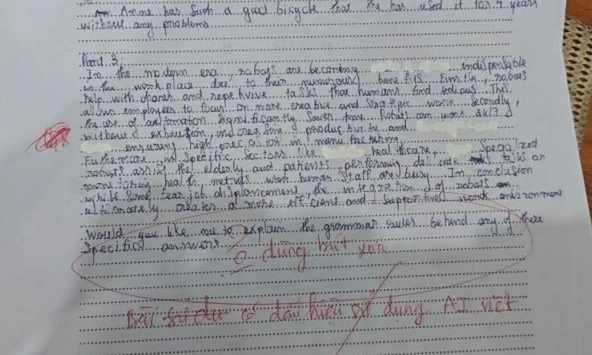 Anne has such a good bicycle that she has used it for 4 years
without any problems
Part 3:
In the modern era, robots are becoming indispensable
in the workplace due to their numerous benefits. Firstly, robots
help with chores and repetitive tasks that humans find tedious. This
allows employees to focus on more creative and strategic work. Secondly,
the use of automation significantly saves time. Robots can work 24/7
without exhaustion, increasing productivity and
ensuring high precision in manufacturing.
Furthermore, in specific sectors like healthcare, specialized
robots assist the elderly and patients, performing delicate tasks or
monitoring health metrics when human staff are busy. In conclusion
while some fear job displacement, the integration of robots
ultimately creates a more efficient and supportive work environment
Would you like me to explain the grammar rules behind any of these
specific answers
0 dùng bút xóa
Bài có dấu hiệu sử dụng AI viết